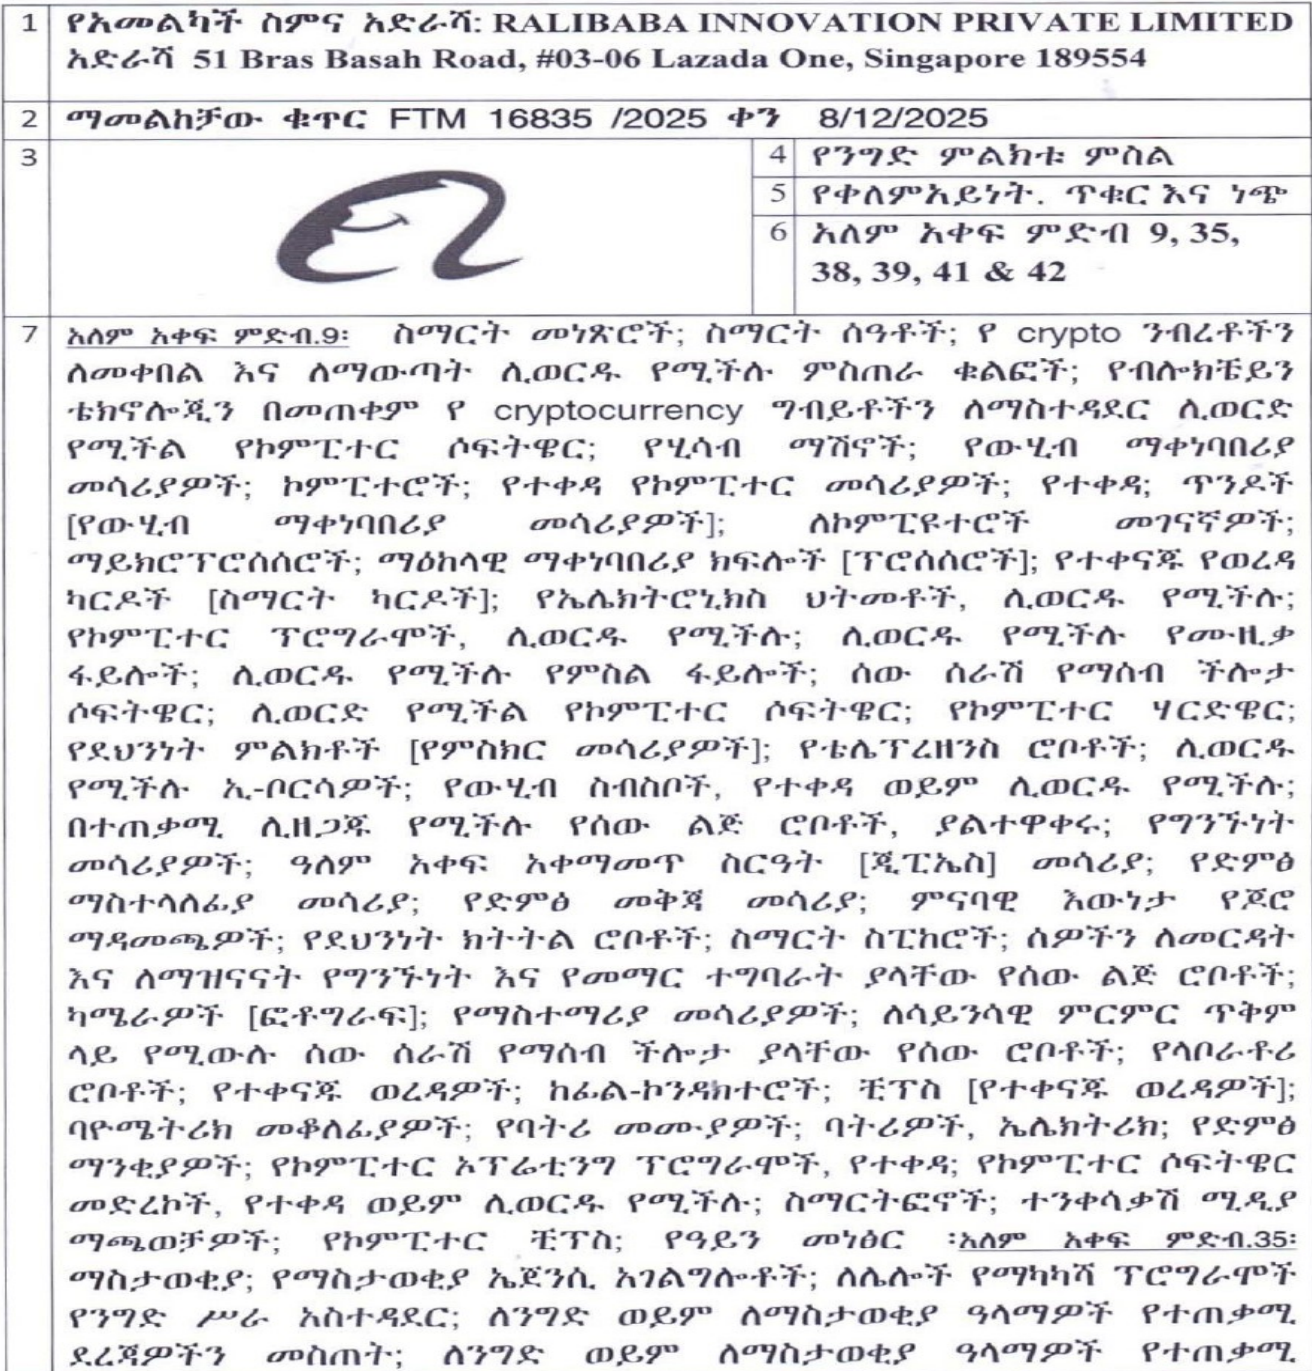 1 የአመልካች ስምና አድራሻ: RALIBABA INNOVATION PRIVATE LIMITED
አድራሻ 51 Bras Basah Road, #03-06 Lazada One, Singapore 189554
2 ማመልከቻው ቁጥር FTM 16835 /2025 ቀን 8/12/2025
3
4 የንግድ ምልክቱ ምስል
5 የቀለምአይነት. ጥቁር እና ነጭ
6 አለም አቀፍ ምድብ 9, 35,
38, 39, 41 & 42
7 አለም አቀፍ ምድብ.9፡ ስማርት መነጽሮች; ስማርት ሰዓቶች; የ crypto ንብረቶችን
ለመቀበል እና ለማውጣት ሊወርዱ የሚችሉ ምስጠራ ቁልፎች; የብሎክቼይን
ቴክኖሎጂን በመጠቀም የ cryptocurrency ግብይቶችን ለማስተዳደር ሊወርድ
የሚችል የኮምፒተር ሶፍትዌር; የሂሳብ ማሽኖች; የውሂብ ማቀነባበሪያ
መሳሪያዎች; ኮምፒተሮች; የተቀዳ የኮምፒተር መሳሪያዎች; የተቀዳ; ጥንዶች
[የውሂብ ማቀነባበሪያ መሳሪያዎች]; ለኮምፒዩተሮች መገናኛዎች;
ማይክሮፕሮሰሰሮች; ማዕከላዊ ማቀነባበሪያ ክፍሎች [ፕሮሰሰሮች]; የተቀናጁ የወረዳ
ካርዶች [ስማርት ካርዶች]; የኤሌክትሮኒክስ ህትመቶች, ሊወርዱ የሚችሉ;
የኮምፒተር ፕሮግራሞች, ሊወርዱ የሚችሉ; ሊወርዱ የሚችሉ የሙዚቃ
ፋይሎች; ሊወርዱ የሚችሉ የምስል ፋይሎች; ሰው ሰራሽ የማሰብ ችሎታ
ሶፍትዌር; ሊወርድ የሚችል የኮምፒተር ሶፍትዌር; የኮምፒተር ሃርድዌር;
የደህንነት ምልክቶች [የምስክር መሳሪያዎች]; የቴሌፕረዘንስ ሮቦቶች; ሊወርዱ
የሚችሉ ኢ-ቦርሳዎች; የውሂብ ስብስቦች, የተቀዳ ወይም ሊወርዱ የሚችሉ;
በተጠቃሚ ሊዘጋጁ የሚችሉ የሰው ልጅ ሮቦቶች, ያልተዋቀሩ; የግንኙነት
መሳሪያዎች; ዓለም አቀፍ አቀማመጥ ስርዓት [ጂፒኤስ] መሳሪያ; የድምፅ
ማስተላለፊያ መሳሪያ; የድምፅ መቅጃ መሳሪያ; ምናባዊ እውነታ የጆሮ
ማዳመጫዎች; የደህንነት ክትትል ሮቦቶች; ስማርት ስፒከሮች; ሰዎችን ለመርዳት
እና ለማዝናናት የግንኙነት እና የመማር ተግባራት ያላቸው የሰው ልጅ ሮቦቶች;
ካሜራዎች [ፎቶግራፍ]; የማስተማሪያ መሳሪያዎች; ለሳይንሳዊ ምርምር ጥቅም
ላይ የሚውሉ ሰው ሰራሽ የማሰብ ችሎታ ያላቸው የሰው ሮቦቶች; የላቦራቶሪ
ሮቦቶች; የተቀናጁ ወረዳዎች; ከፊል-ኮንዳክተሮች; ቺፕስ [የተቀናጁ ወረዳዎች];
ባዮሜትሪክ መቆለፊያዎች; የባትሪ መሙያዎች; ባትሪዎች, ኤሌክትሪክ; የድምፅ
ማንቂያዎች; የኮምፒተር ኦፕሬቲንግ ፕሮግራሞች, የተቀዳ; የኮምፒተር ሶፍትዌር
መድረኮች, የተቀዳ ወይም ሊወርዱ የሚችሉ; ስማርትፎኖች; ተንቀሳቃሽ ሚዲያ
ማጫወቻዎች; የኮምፒተር ቺፕስ; የዓይን መነፅር ፡አለም አቀፍ ምድብ.35፡
ማስታወቂያ; የማስታወቂያ ኤጀንሲ አገልግሎቶች; ለሌሎች የማካካሻ ፕሮግራሞች
የንግድ ሥራ አስተዳደር; ለንግድ ወይም ለማስታወቂያ ዓላማዎች የተጠቃሚ
ደረጃዎችን መስጠት; ለንግድ ወይም ለማስታወቂያ ዓላማዎች የተጠቃሚ